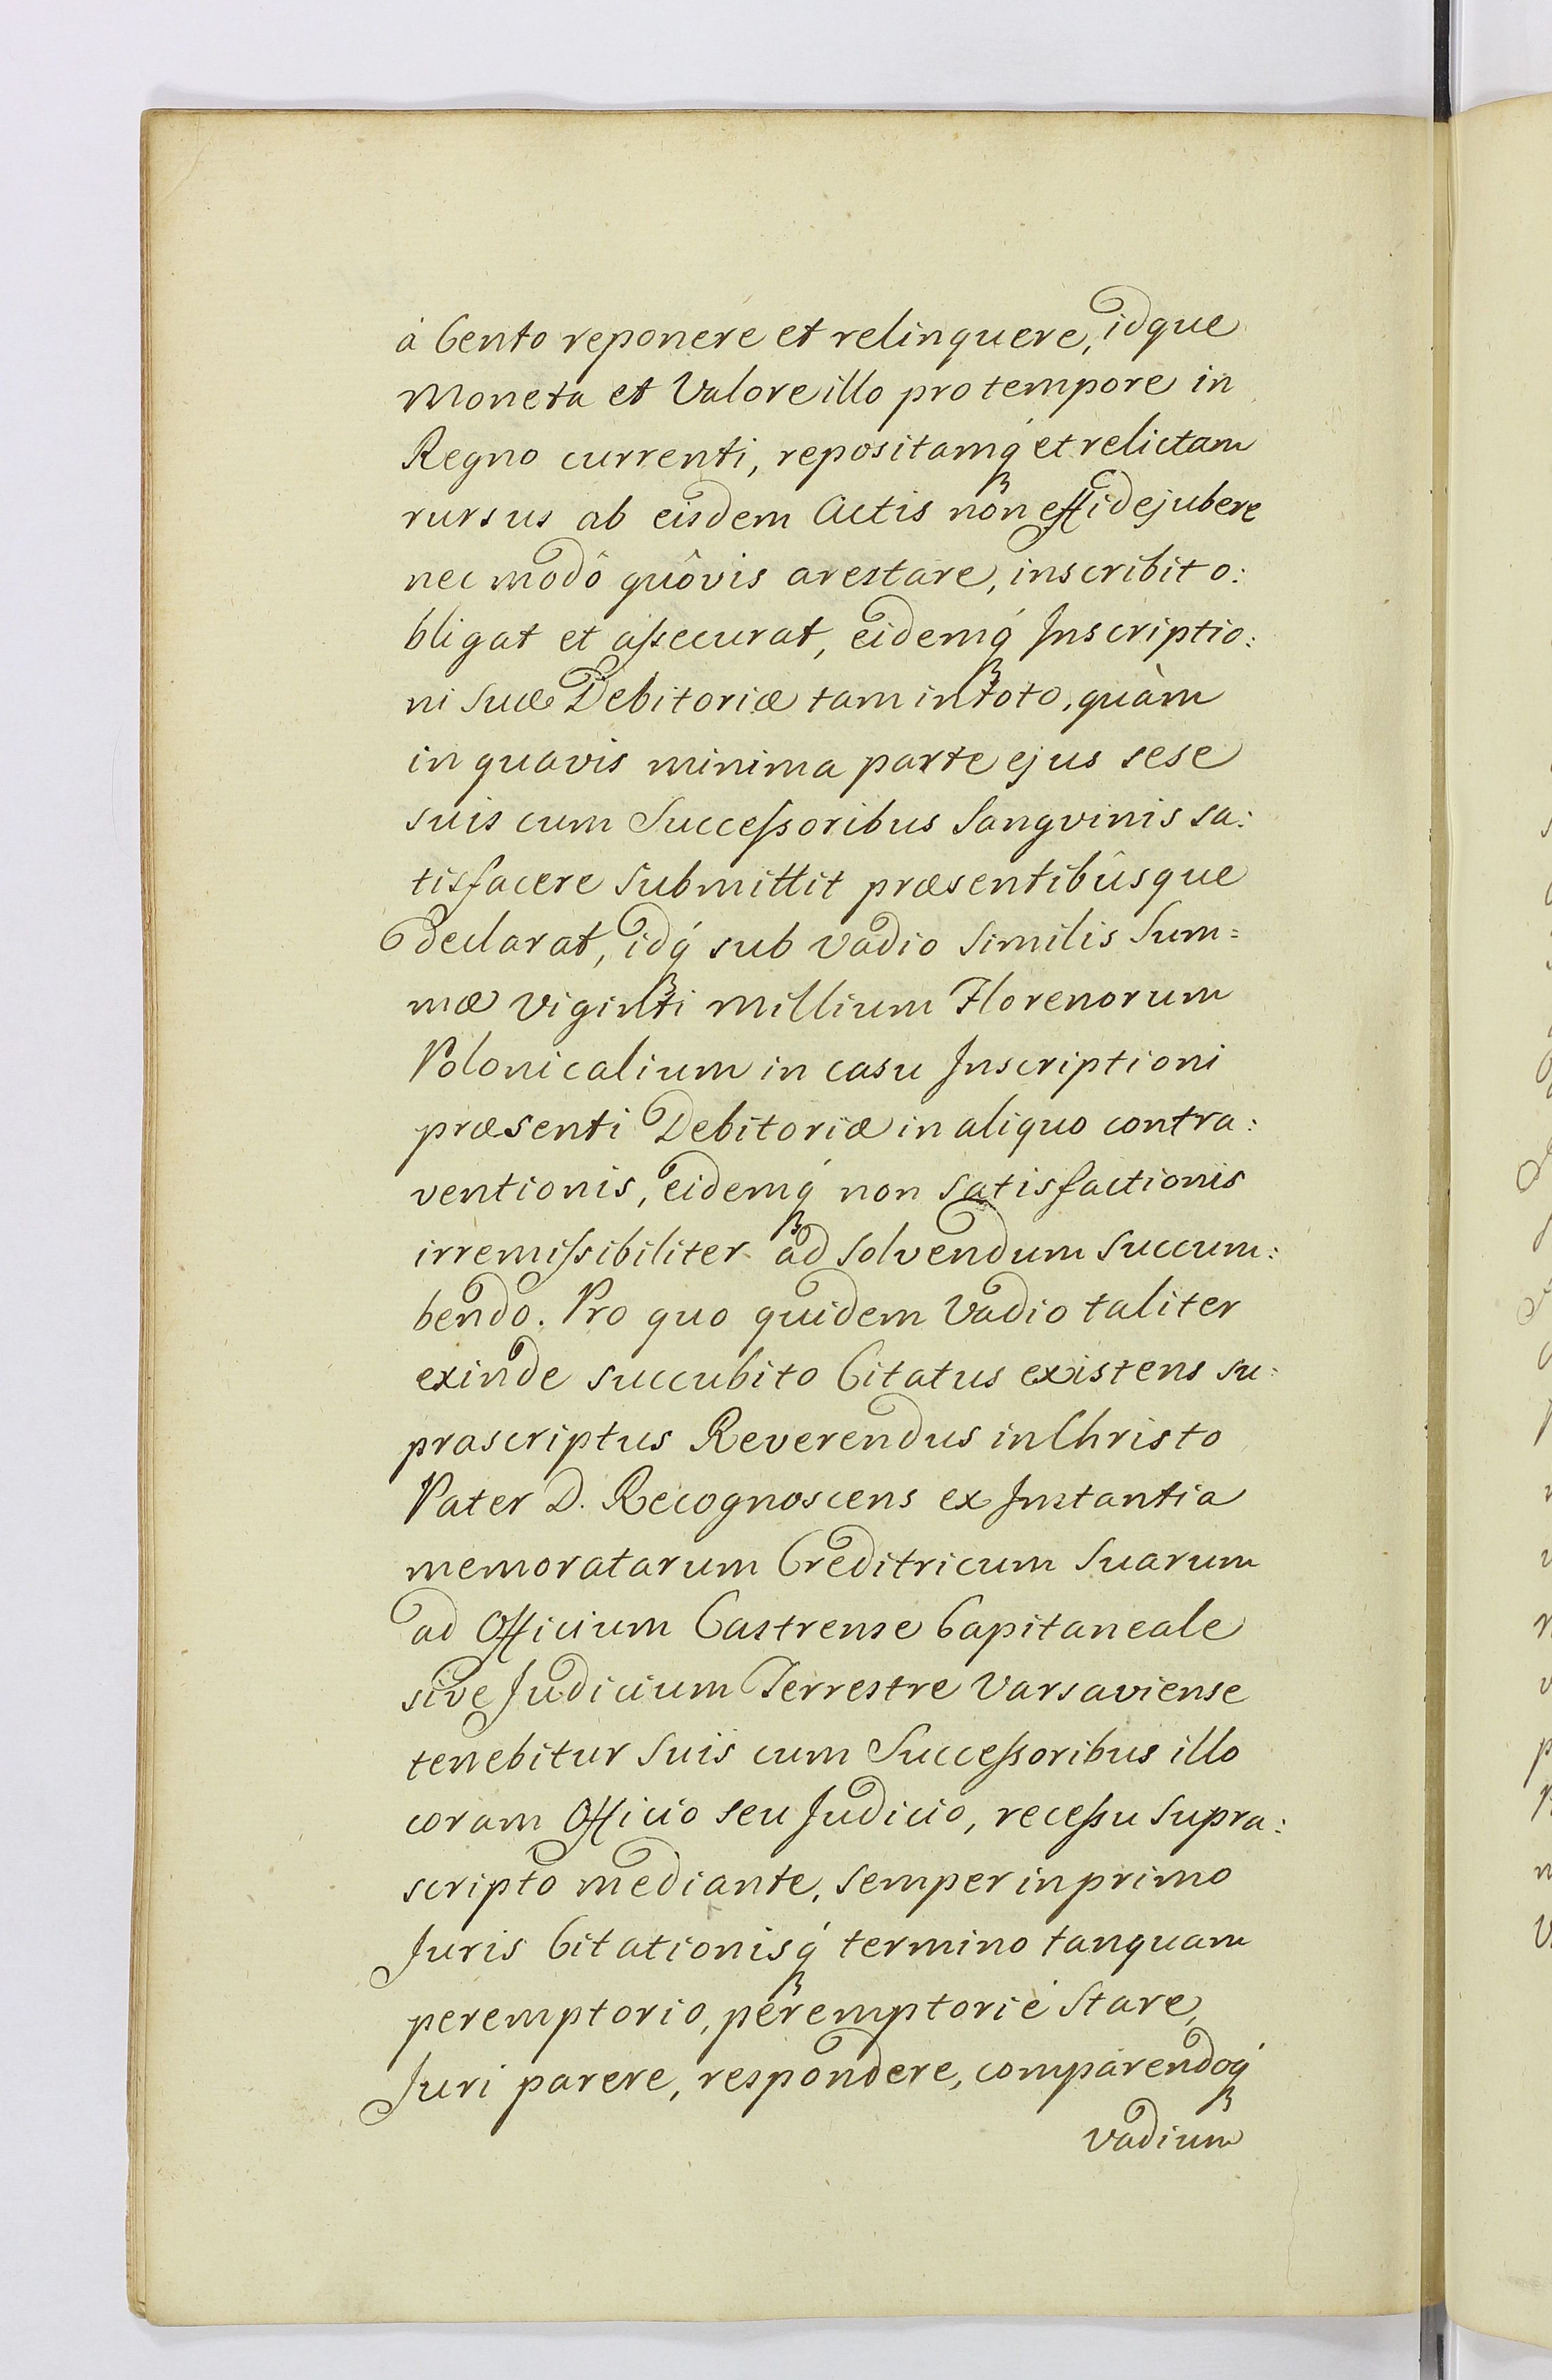 à Cento reponere et relinquere, idque
Moneta et Valore illo pro tempore in
Regno currenti, repositamq́ et relictam
rursus ab eisdem Actis non effidejubere
nec modô quôvis arestare, inscribit o:
bligat et assecurat, eidemq́ Inscriptio:
ni suæ Debitoriæ tam in toto, quàm
in quavis minima parte ejus sese
suis cum Successoribus Sangvinis sa:
tisfacere submittit præsentibûsque
declarat, idq́ sub vadio similis Sum=
mæ viginti Millium Florenorum
Polonicalium in casu Inscriptioni
præsenti Debitoriæ in aliquo contra:
ventionis, eidemq́ non satisfactionis
irremissibiliter ad solvendum succum:
bendo. Pro quo quidem Vadio taliter
exinde succubito Citatus existens su:
prascriptus Reverendus in Christo
Pater D. Recognoscens ex Instantia
memoratarum Creditricum Suarum
ad Officium Castrense Capitaneale
sive Judicium Terrestre Varsaviense
tenebitur suis cum Successoribus illo
coram Officio seu Judicio, recessu supra:
scripto mediante, semper in primo
Juris Citationisq́ termino tanquam
peremptorio, peremptoriè stare,
Juri parere, respondere, comparendoq́
vadium